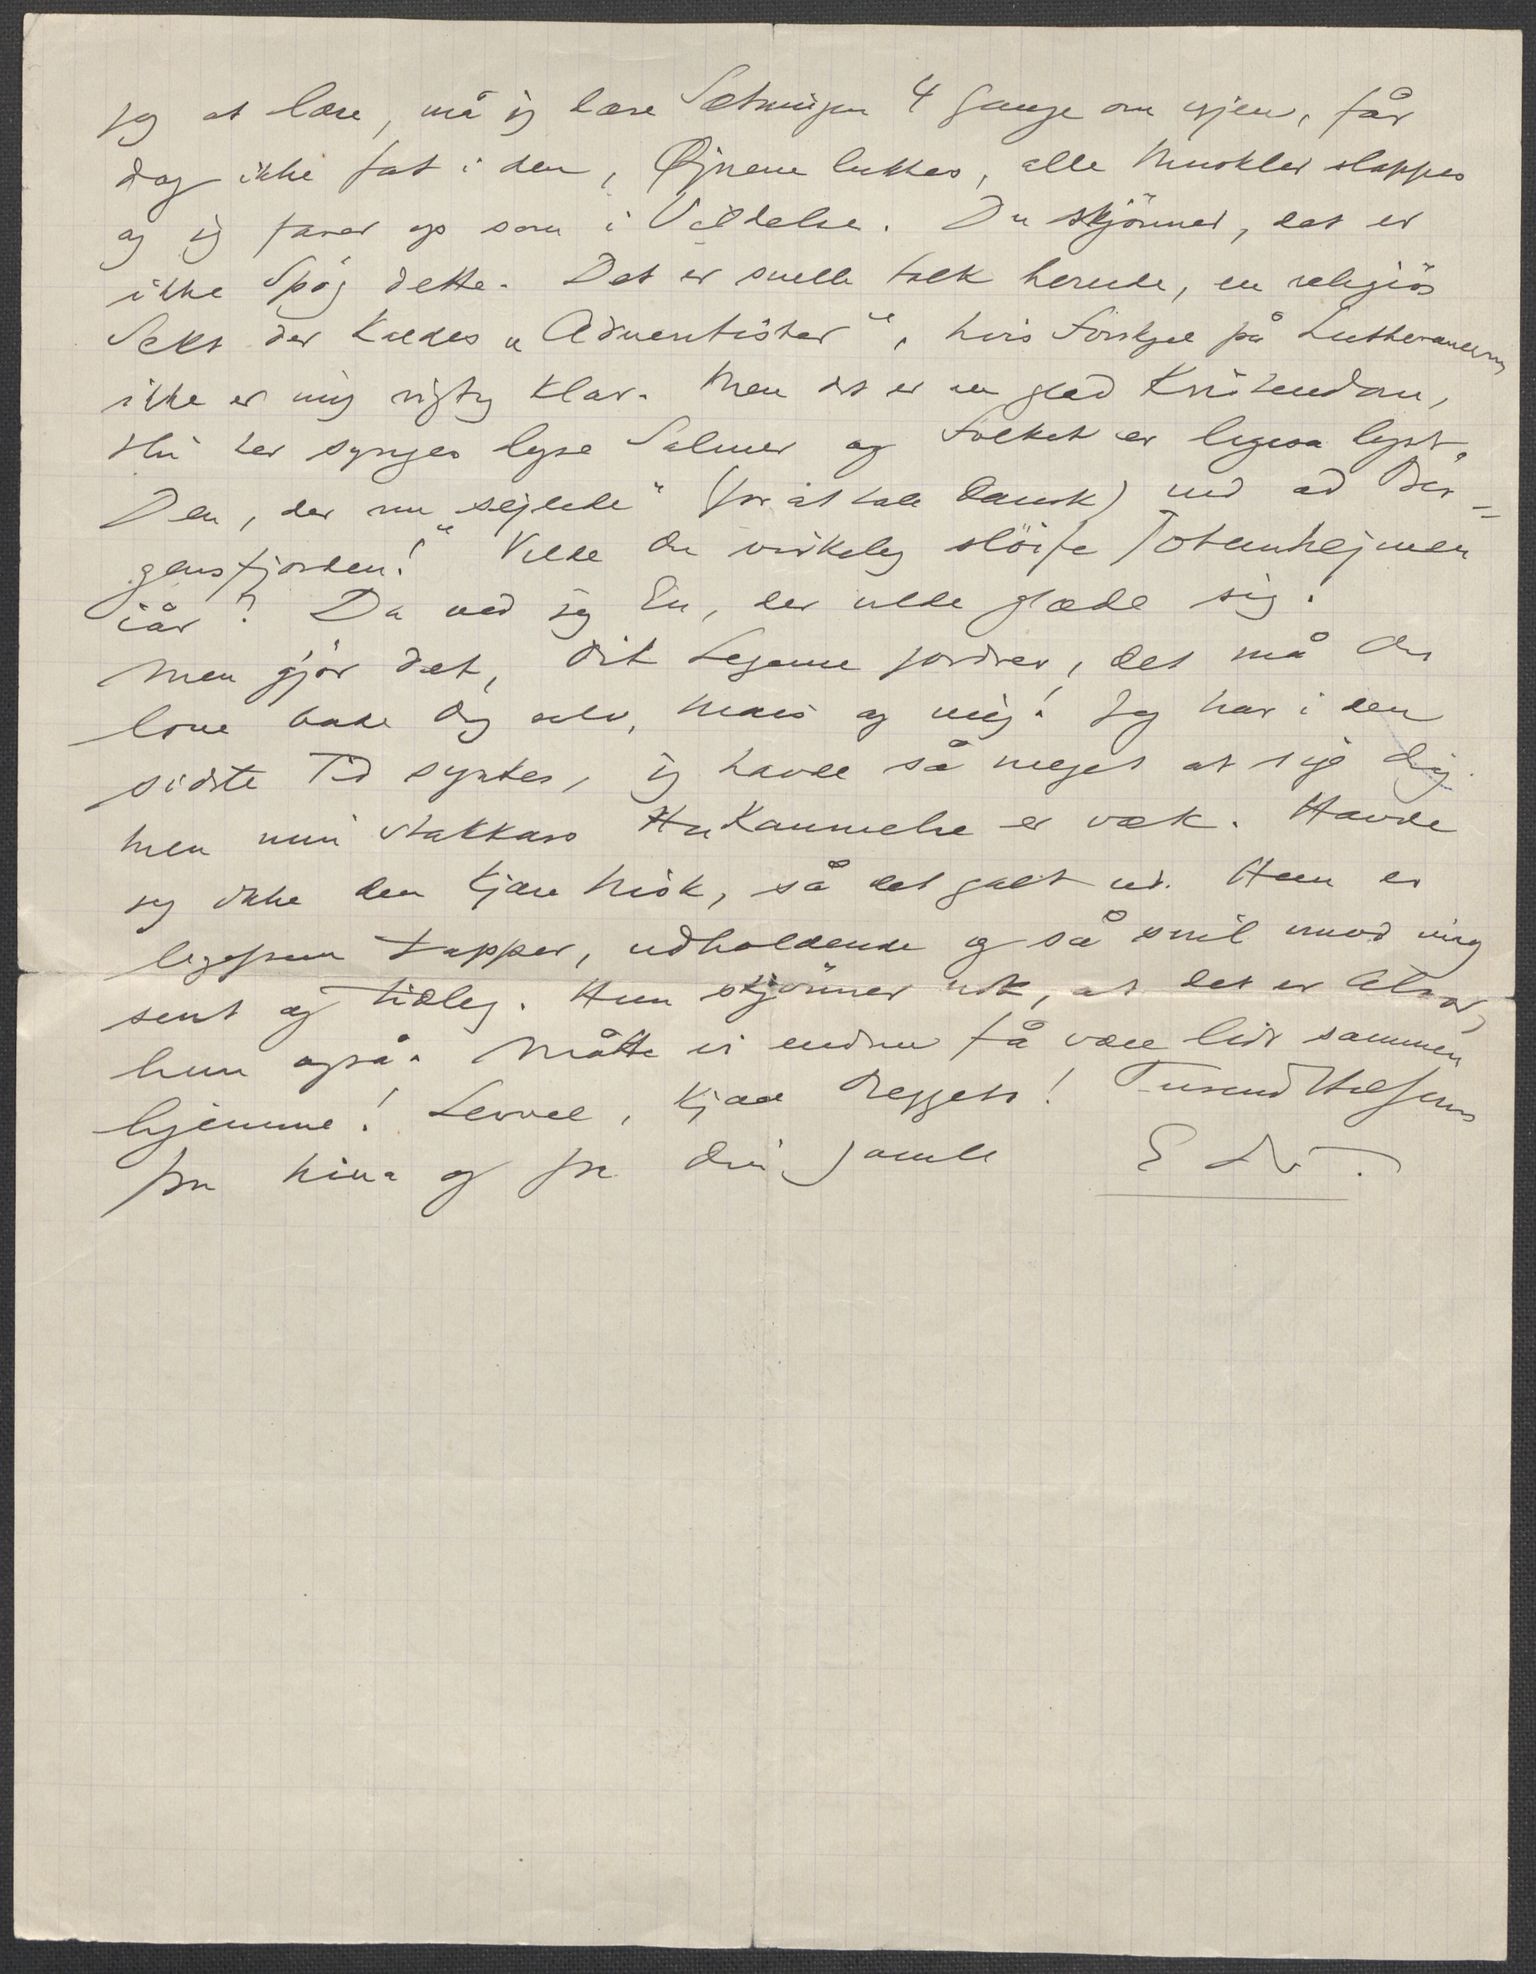 jeg at læse, må jeg læse Sætningen 4 Gange om igjen, får
dog ikke fat i den, Øjnene lukkes, alle Muskler slappes
og jeg farer op som i Vildelse. Du skjönner, det er
ikke Spög dette. Det er snille Folk herude, en religiös
Sekt der kaldes „Adventister“, hvis Forskjel på Lutheranerne
ikke er mig rigtig klar. Men det er en glad Kristendom,
thi her synges lyse Salmer og Folket er ligesa lyst.
Den, der nu „sejlede“ (for at tale Dansk) ned ad Ber=
gensfjorden! Vilde du virkelig slöife Jotunhejmen
iår? Da ved jeg En, der vilde glæde sig!
Men gjör det, dit Legeme fordrer, det må du
love både dig selv, Mais og mig! Jeg har i den
sidste Tid syntes, jeg havde så meget at sige dig
men min stakkars Hukommelse er væk. Havde
jeg ikke den kjære Misk, så det galt ud. Hun er
ligesom tapper, udholdende og så snil mod mig
sent og tidlig. Hun skjönner nok, at det er Alvor,
hun også. Måtte vi endnu få være lidt sammen
hjemme! Levvel, kjære Beggeto! Tusend Hilsener
fra Nina og fra din gamle E